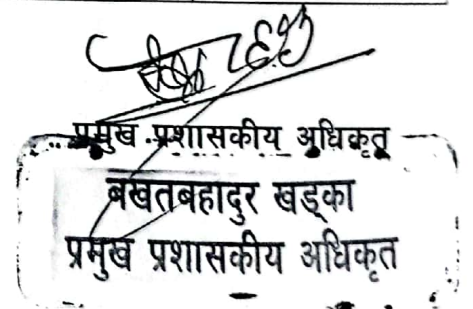 प्रमुख प्रशासकीय अधिकृत
बखतबहादुर खड्का
प्रमुख प्रशासकीय अधिकृत